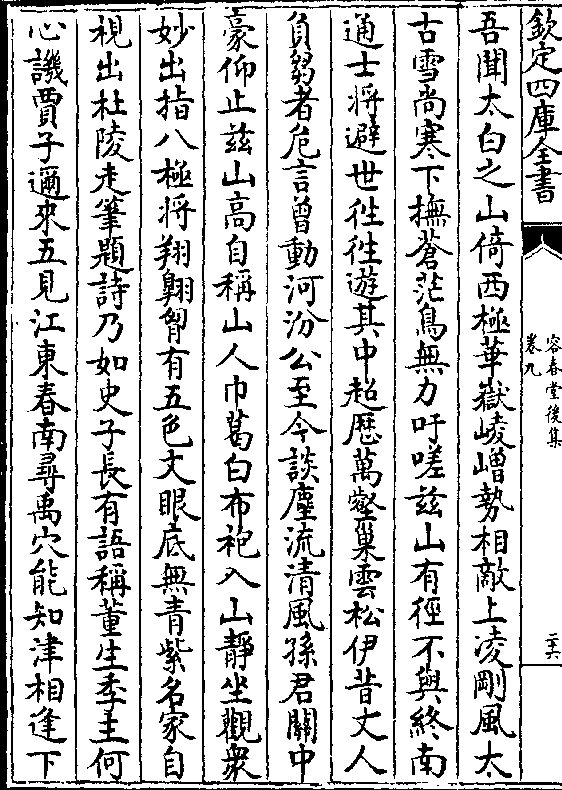 欽定四庫全書
容春堂後集
卷九
二六
吾聞太白之山倚西極華嶽崚嶒勢相敵上凌剛風太
古雪尚寒下撫蒼茫鳥無力吁嗟兹山有徑不與終南
通士將避世徃徃遊其中超歴萬壑巢雲松伊昔丈人
負芻者危言曾動河汾公至今談麈流清風孫君關中
豪仰止兹山高自稱山人巾葛白布袍入山靜坐觀衆
妙出指八極將翔翺胷有五色文眼底無青紫名家自
視出杜陵走筆題詩乃如史子長有語稱董生季主何
心譏賈子邇來五見江東春南尋禹穴能知津相逢下